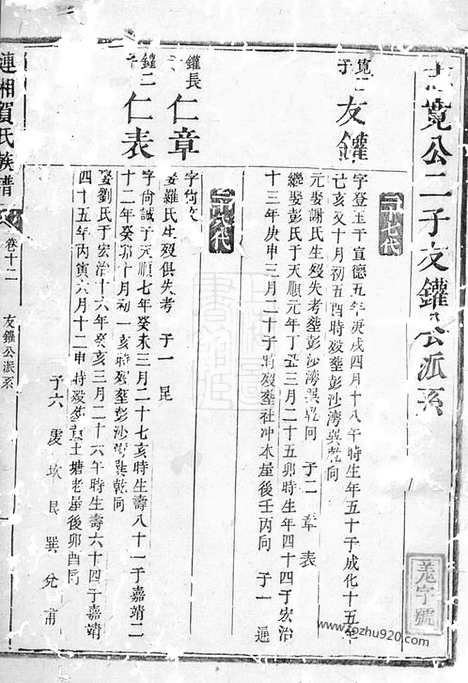 志寬公二子友鑵公派系
二十七代
寬二子
友鑵
字登玉于宣德五年庚戌四月十八午時生年五十于成化十五年
己亥十月初五酉時歿葬彭沙灣巽乾向
元娶謝氏生歿失考葬彭沙灣巽乾向 子二 章 表
繼娶彭氏于天順元年丁丑三月二十五卯時生年四十四于宏治
十三年庚申三月二十子時歿葬社冲本屋後壬丙向 子一 遜
二十八代
鑵長子
仁章
字尙文
娶羅氏生歿俱失考 子一 昆
鑵二子
仁表
字尙誠于天順七年癸未三月二十七亥時生壽八十一于嘉靖二
十二年癸卯十月初一亥時歿葬彭沙灣巽乾向
娶劉氏于宏治十六年癸亥三月二十六午時生壽六十四于嘉靖
四十五年丙寅六月十二申時歿葬土塘老屋後卯酉向
子六 震 坎 艮 巽 兌 甫
連湘賀氏族譜
卷十二
友鑵公派系
一
羌字號
www.fozhu920.com